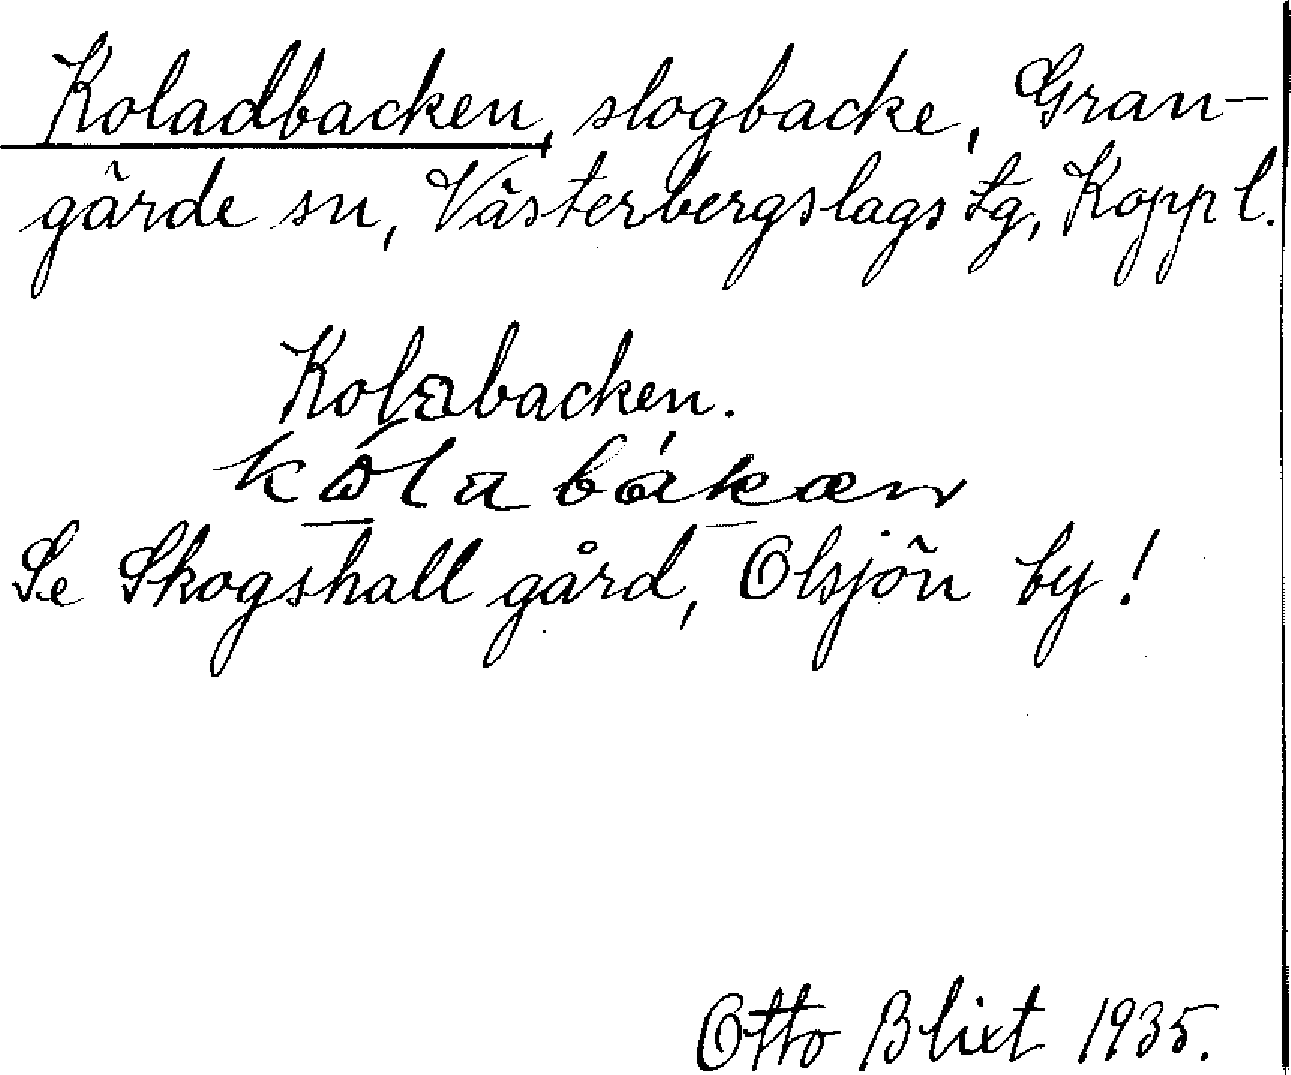 Koladbacken, slogbacke, Gran-
gärde sn, Västerbergslags tg, Kopp l.
Kolabacken.
kåla bákæn
Se Skogshall gård, Olsjön by!
Otto Blixt 1935.